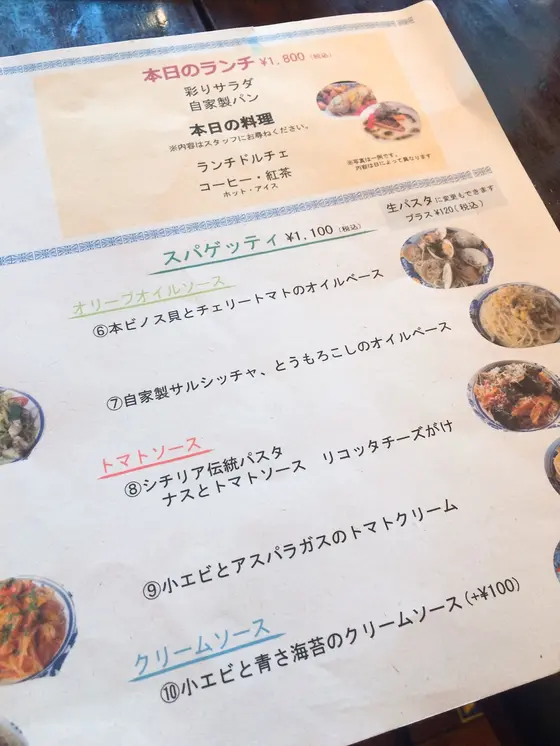 本日のランチ ¥1,800 (税込)
彩りサラダ
自家製パン
本日の料理
※内容はスタッフにお尋ねください。
ランチドルチェ
コーヒー・紅茶
ホット・アイス
※写真は一例です。
内容は日によって異なります
生パスタに変更もできます
プラス¥120(税込)
スパゲッティ ¥1,100 (税込)
オリーブオイルソース
⑥本ビノス貝とチェリートマトのオイルベース
⑦自家製サルシッチャ、とうもろこしのオイルベース
トマトソース
⑧シチリア伝統パスタ
ナスとトマトソース リコッタチーズがけ
⑨小エビとアスパラガスのトマトクリーム
クリームソース
⑩小エビと青さ海苔のクリームソース(+¥100)